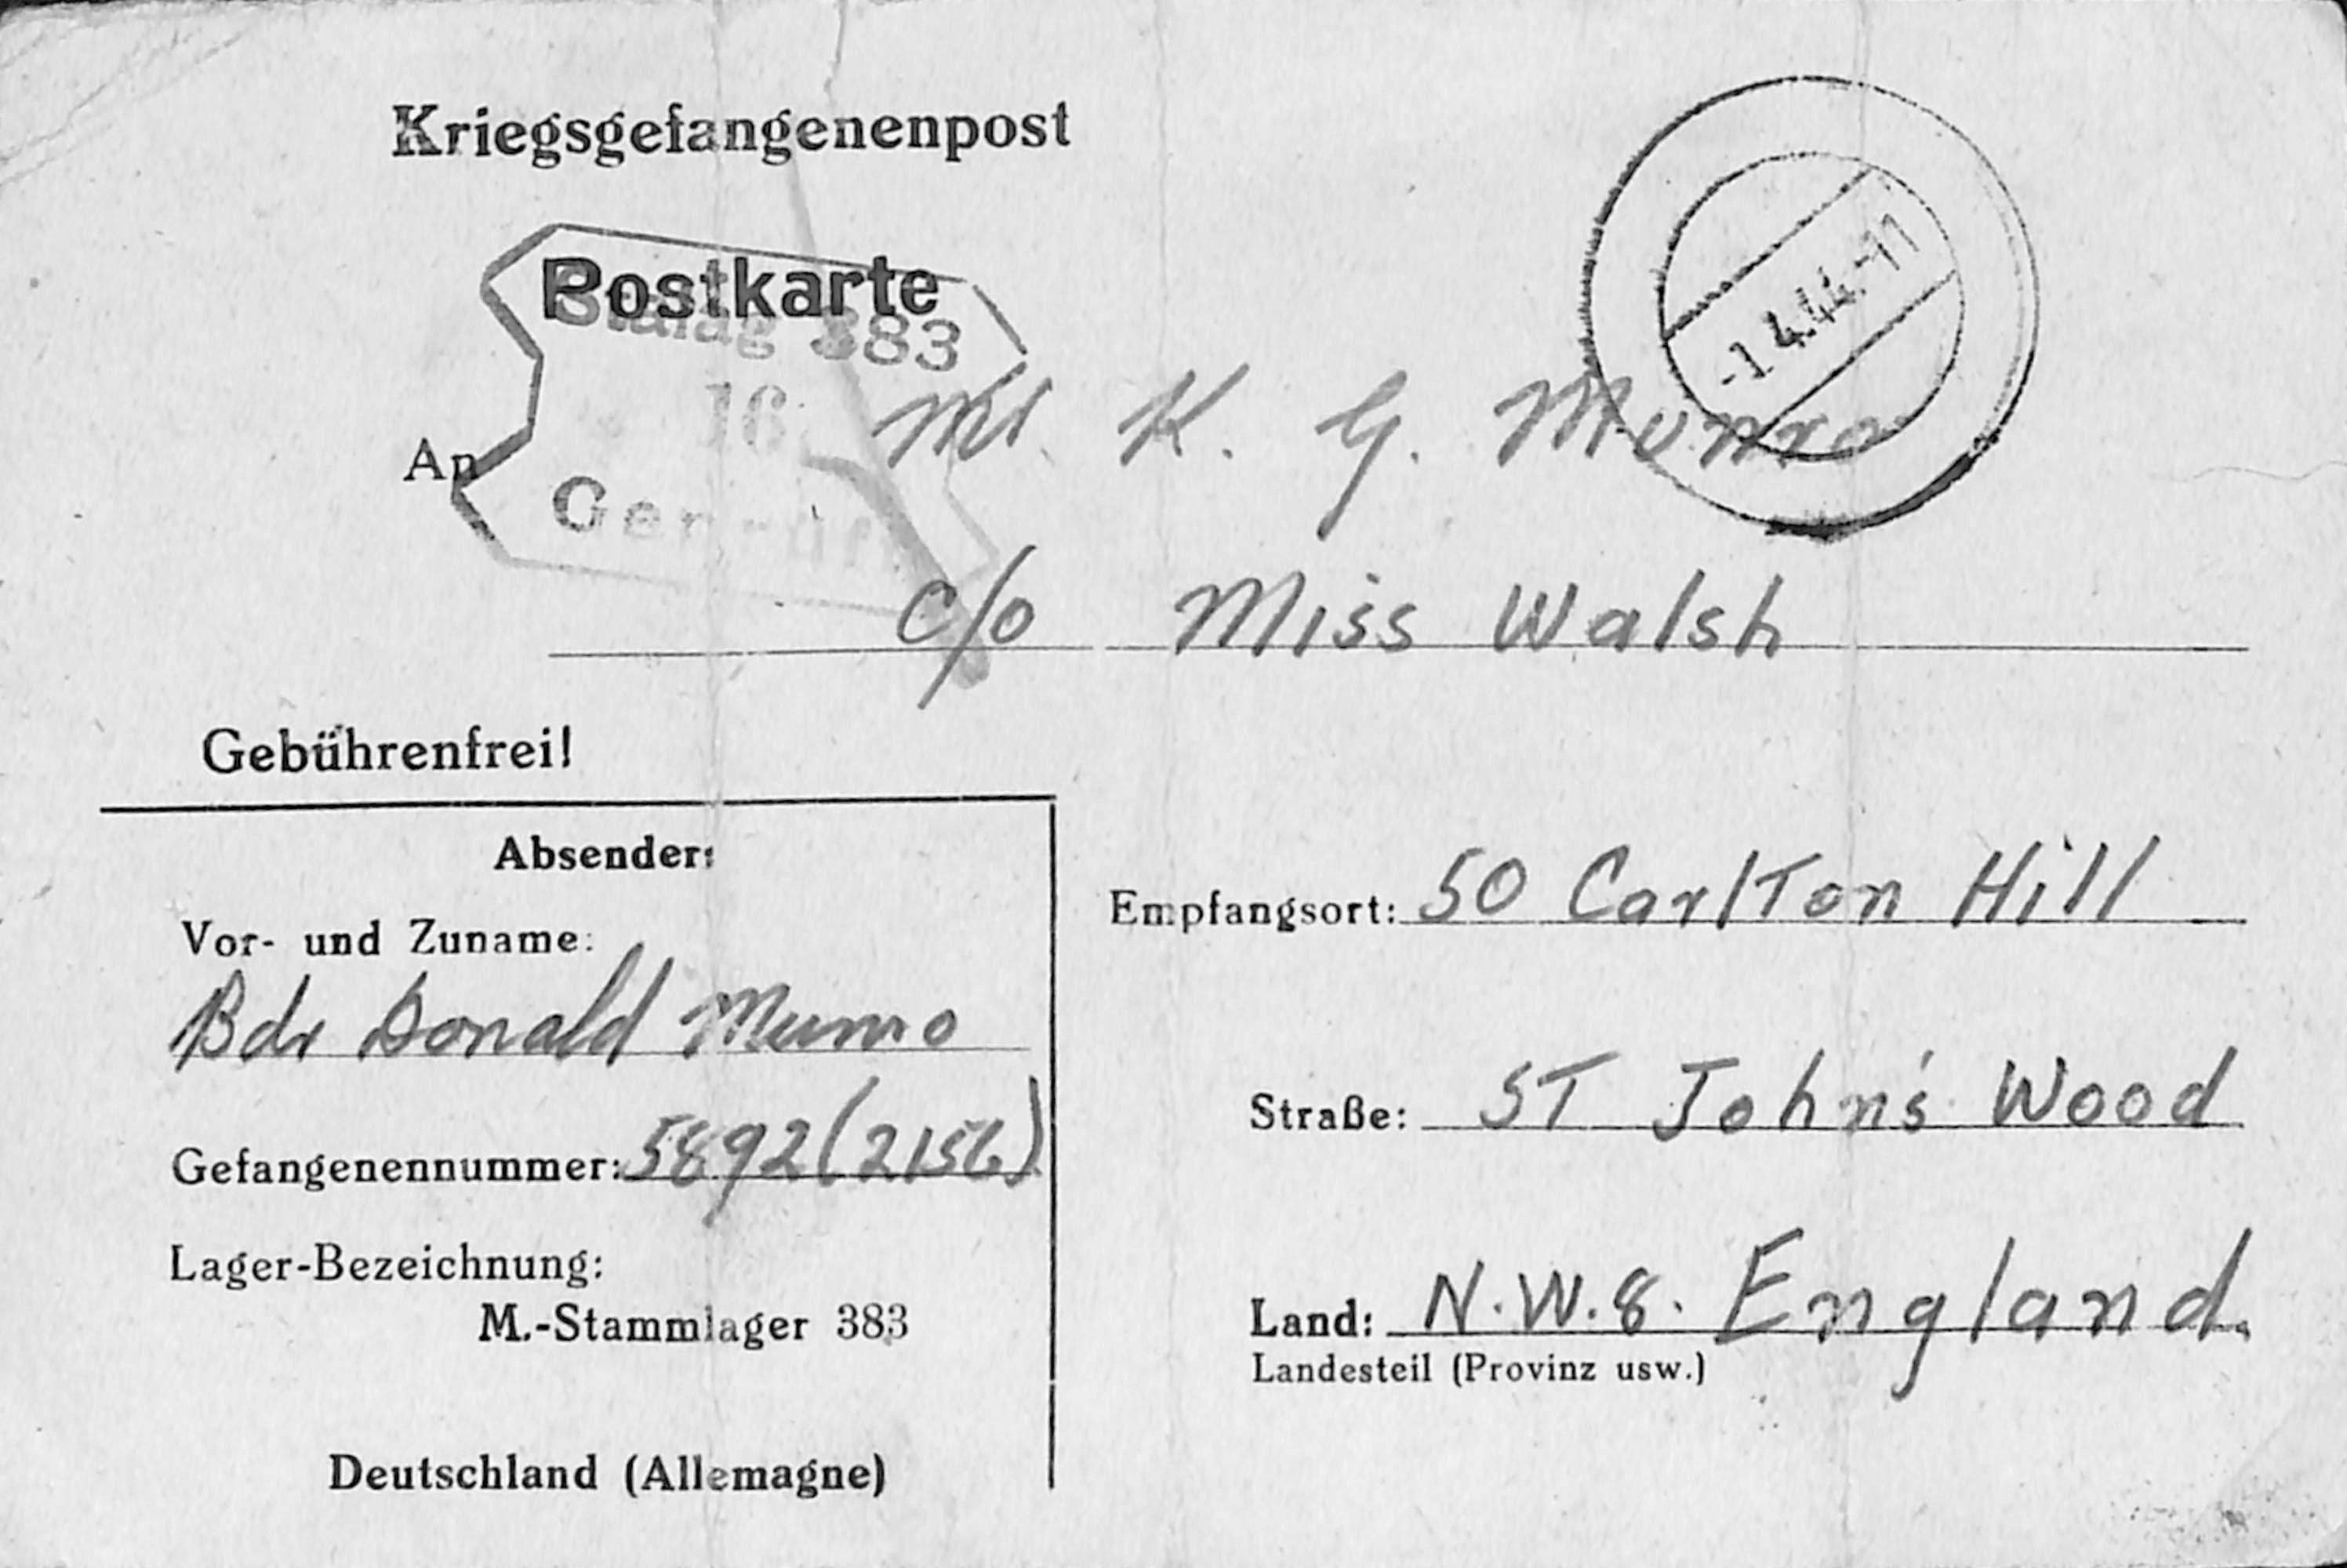 Kriegsgefangenenpost
-1.4.44.-11
Postkarte
Stalag 383
16
Geprüft
An Mr. K. G. Munro
c/o Miss Walsh
Gebührenfrei!
Absender:
Vor- und Zuname:
Bdr Donald Munro
Gefangenennummer: 5892 (2156)
Lager-Bezeichnung:
M.-Stammlager 383
Deutschland (Allemagne)
Empfangsort: 50 Carlton Hill
Straße: ST John's Wood
Land: N.W.8. England.
Landesteil (Provinz usw.)